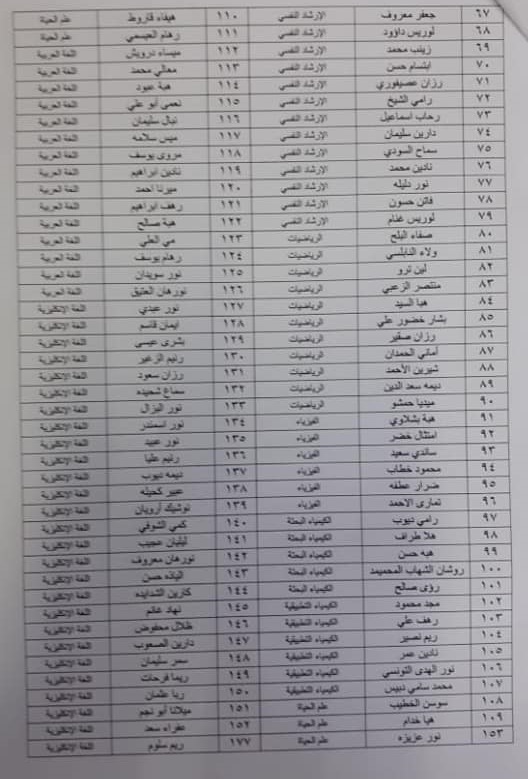 ٦٧ جعفر معروف الإرشاد النفسي ١١٠ هيفاء قاروط علم الحياة
٦٨ لوريس داؤود الإرشاد النفسي ١١١ رهام العيسمي علم الحياة
٦٩ زينب محمد الإرشاد النفسي ١١٢ ميساء درويش اللغة العربية
٧٠ ابتسام حسن الإرشاد النفسي ١١٣ معالي محمد اللغة العربية
٧١ رزان عصيفوري الإرشاد النفسي ١١٤ هبة عبود اللغة العربية
٧٢ رامي الشيخ الإرشاد النفسي ١١٥ نعمى أبو علي اللغة العربية
٧٣ رحاب اسماعيل الإرشاد النفسي ١١٦ نبال سليمان اللغة العربية
٧٤ دارين سليمان الإرشاد النفسي ١١٧ ميس سلامه اللغة العربية
٧٥ سماح السودي الإرشاد النفسي ١١٨ مروى يوسف اللغة العربية
٧٦ نادين محمد الإرشاد النفسي ١١٩ نادين ابراهيم اللغة العربية
٧٧ نور دليله الإرشاد النفسي ١٢٠ ميرنا احمد اللغة العربية
٧٨ فاتن حسون الإرشاد النفسي ١٢١ رهف ابراهيم اللغة العربية
٧٩ لوريس غنام الإرشاد النفسي ١٢٢ هبة صالح اللغة العربية
٨٠ صفاء البلح الرياضيات ١٢٣ مي العلي اللغة العربية
٨١ ولاء النابلسي الرياضيات ١٢٤ رهام يوسف اللغة العربية
٨٢ لين نرو الرياضيات ١٢٥ نور سويدان اللغة العربية
٨٣ منتصر الزعبي الرياضيات ١٢٦ نورهان العتيق اللغة العربية
٨٤ هبا السيد الرياضيات ١٢٧ نور عبدي اللغة الإنكليزية
٨٥ بشار خضور علي الرياضيات ١٢٨ ايمان قاسم اللغة الإنكليزية
٨٦ رزان صقير الرياضيات ١٢٩ بشرى عيسى اللغة الإنكليزية
٨٧ أماني الحمدان الرياضيات ١٣٠ رنيم الزغير اللغة الإنكليزية
٨٨ شيرين الأحمد الرياضيات ١٣١ رزان سعود اللغة الإنكليزية
٨٩ ديمه سعد الدين الرياضيات ١٣٢ سماع شحيده اللغة الإنكليزية
٩٠ ميديا حمشو الرياضيات ١٣٣ نور اليزال اللغة الإنكليزية
٩١ هبة بشلاوي الفيزياء ١٣٤ نور اسمندر اللغة الإنكليزية
٩٢ امتثال خضر الفيزياء ١٣٥ نور عبيد اللغة الإنكليزية
٩٣ ساندي سعيد الفيزياء ١٣٦ رنيم عليا اللغة الإنكليزية
٩٤ محمود خطاب الفيزياء ١٣٧ ديمه ديوب اللغة الإنكليزية
٩٥ ضرار عطفه الفيزياء ١٣٨ عبير كحيله اللغة الإنكليزية
٩٦ تمارى الاحمد الفيزياء ١٣٩ نوشيك أرويان اللغة الإنكليزية
٩٧ رامي ديوب الكيمياء البحتة ١٤٠ كمي الشوفي اللغة الإنكليزية
٩٨ هلا طراف الكيمياء البحتة ١٤١ ليليان عجيب اللغة الإنكليزية
٩٩ هبه حسن الكيمياء البحتة ١٤٢ نورهان معروف اللغة الإنكليزية
١٠٠ روشان الشهاب المحميمد الكيمياء البحتة ١٤٣ اليانه حسن اللغة الإنكليزية
١٠١ رؤى صالح الكيمياء البحتة ١٤٤ كارين الشدايده اللغة الإنكليزية
١٠٢ مجد محمود الكيمياء التطبيقية ١٤٥ نهاد غانم اللغة الإنكليزية
١٠٣ رهف علي الكيمياء التطبيقية ١٤٦ ظلال محفوض اللغة الإنكليزية
١٠٤ ريم نصير الكيمياء التطبيقية ١٤٧ دارين الصعوب اللغة الإنكليزية
١٠٥ نادين عمر الكيمياء التطبيقية ١٤٨ سمر سليمان اللغة الإنكليزية
١٠٦ نور الهدى التونسي الكيمياء التطبيقية ١٤٩ ريما فرحات اللغة الإنكليزية
١٠٧ محمد سامي دبيس الكيمياء التطبيقية ١٥٠ ربا عثمان اللغة الإنكليزية
١٠٨ سوسن الخطيب علم الحياة ١٥١ ميلانا أبو نجم اللغة الإنكليزية
١٠٩ هيا خدام علم الحياة ١٥٢ عفراء سعد اللغة الإنكليزية
١٥٣ نور عزيزه علم الحياة ١٧٧ ريم سلوم اللغة الإنكليزية